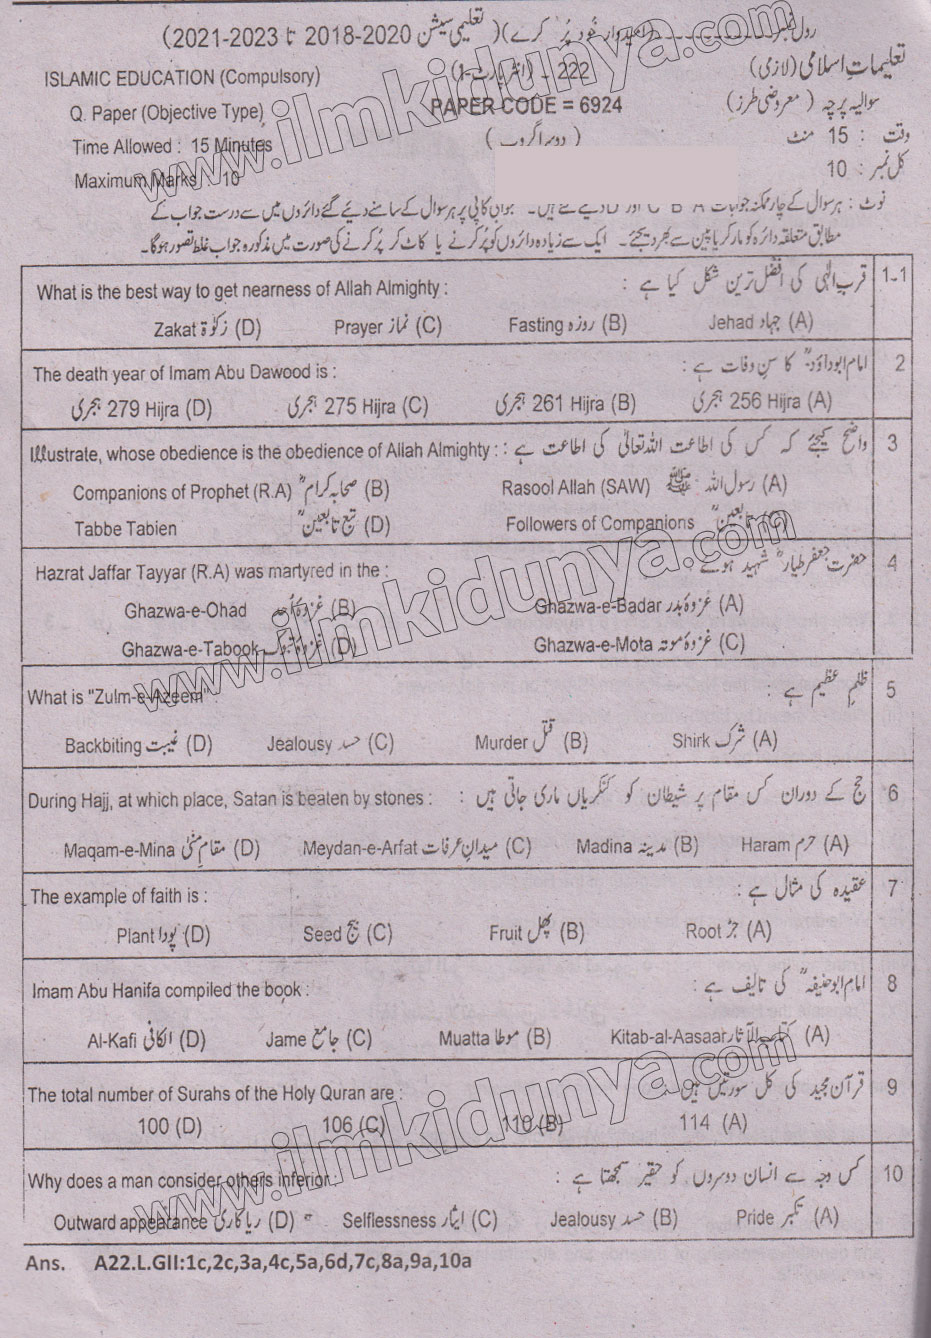 رول نمبر (امیدوار خود پُر کرے) (تعلیمی سیشن 2020-2018 تا 2023-2021)
تعلیمات اسلامی (لازمی) 222 - (انٹر پارٹ-I) ISLAMIC EDUCATION (Compulsory)
سوالیہ پرچہ (معروضی طرز) PAPER CODE = 6924 Q. Paper (Objective Type)
وقت : 15 منٹ (دوسرا گروپ) Time Allowed : 15 Minutes
کل نمبر : 10 Maximum Marks : 10
نوٹ : ہر سوال کے چار ممکنہ جوابات A B C اور D دیے گئے ہیں۔ جوابی کاپی پر ہر سوال کے سامنے دئیے گئے دائروں میں سے درست جواب کے
مطابق متعلقہ دائرہ کو مارکر یا پین سے بھر دیجئے۔ ایک سے زیادہ دائروں کو پُر کرنے یا کاٹ کر پُر کرنے کی صورت میں مذکورہ جواب غلط تصور ہوگا۔
1-1 قرب الٰہی کی افضل ترین شکل کیا ہے : What is the best way to get nearness of Allah Almighty :
(A) جہاد Jehad (B) روزہ Fasting (C) نماز Prayer (D) زکوٰۃ Zakat
2 امام ابوداؤدؒ کا سن وفات ہے : The death year of Imam Abu Dawood is :
(A) 256 Hijra ہجری (B) 261 Hijra ہجری (C) 275 Hijra ہجری (D) 279 Hijra ہجری
3 واضح کیجئے کہ کس کی اطاعت اللہ تعالیٰ کی اطاعت ہے : Illustrate, whose obedience is the obedience of Allah Almighty :
(A) رسول اللہ ﷺ Rasool Allah (SAW) (B) صحابہ کرامؓ Companions of Prophet (R.A)
(C) تابعینؒ Followers of Companions (D) تبع تابعینؒ Tabbe Tabien
4 حضرت جعفر طیارؓ شہید ہوئے : Hazrat Jaffar Tayyar (R.A) was martyred in the :
(A) غزوۂ بدر Ghazwa-e-Badar (B) غزوۂ احد Ghazwa-e-Ohad
(C) غزوۂ موتہ Ghazwa-e-Mota (D) غزوۂ تبوک Ghazwa-e-Tabook
5 ظلم عظیم ہے : What is "Zulm-e-Azeem" :
(A) شرک Shirk (B) قتل Murder (C) حسد Jealousy (D) غیبت Backbiting
6 حج کے دوران کس مقام پر شیطان کو کنکریاں ماری جاتی ہیں : During Hajj, at which place, Satan is beaten by stones :
(A) حرم Haram (B) مدینہ Madina (C) میدانِ عرفات Meydan-e-Arfat (D) مقامِ منیٰ Maqam-e-Mina
7 عقیدہ کی مثال ہے : The example of faith is :
(A) جڑ Root (B) پھل Fruit (C) بیج Seed (D) پودا Plant
8 امام ابو حنیفہؒ کی تالیف ہے : Imam Abu Hanifa compiled the book :
(A) کتاب الآثار Kitab-al-Aasaar (B) موطا Muatta (C) جامع Jame (D) الکافی Al-Kafi
9 قرآن مجید کی کل سورتیں ہیں : The total number of Surahs of the Holy Quran are :
(A) 114 (B) 110 (C) 106 (D) 100
10 کس وجہ سے انسان دوسروں کو حقیر سمجھتا ہے : Why does a man consider others inferior :
(A) تکبر Pride (B) حسد Jealousy (C) ایثار Selflessness (D) ریا کاری Outward appearance
Ans. A22.L.GII:1c,2c,3a,4c,5a,6d,7c,8a,9a,10a
www.ilmkidunya.com
www.ilmkidunya.com
www.ilmkidunya.com